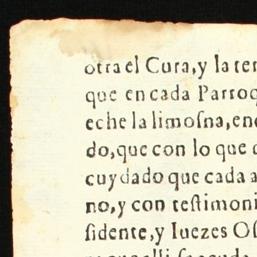 otra el Cura, y la ter
que en cada Parroq
eche la limoſna, en
do, que con lo que
cuydado que cada a
no, y con teſtimoni
ſidente, y Iuezes Of